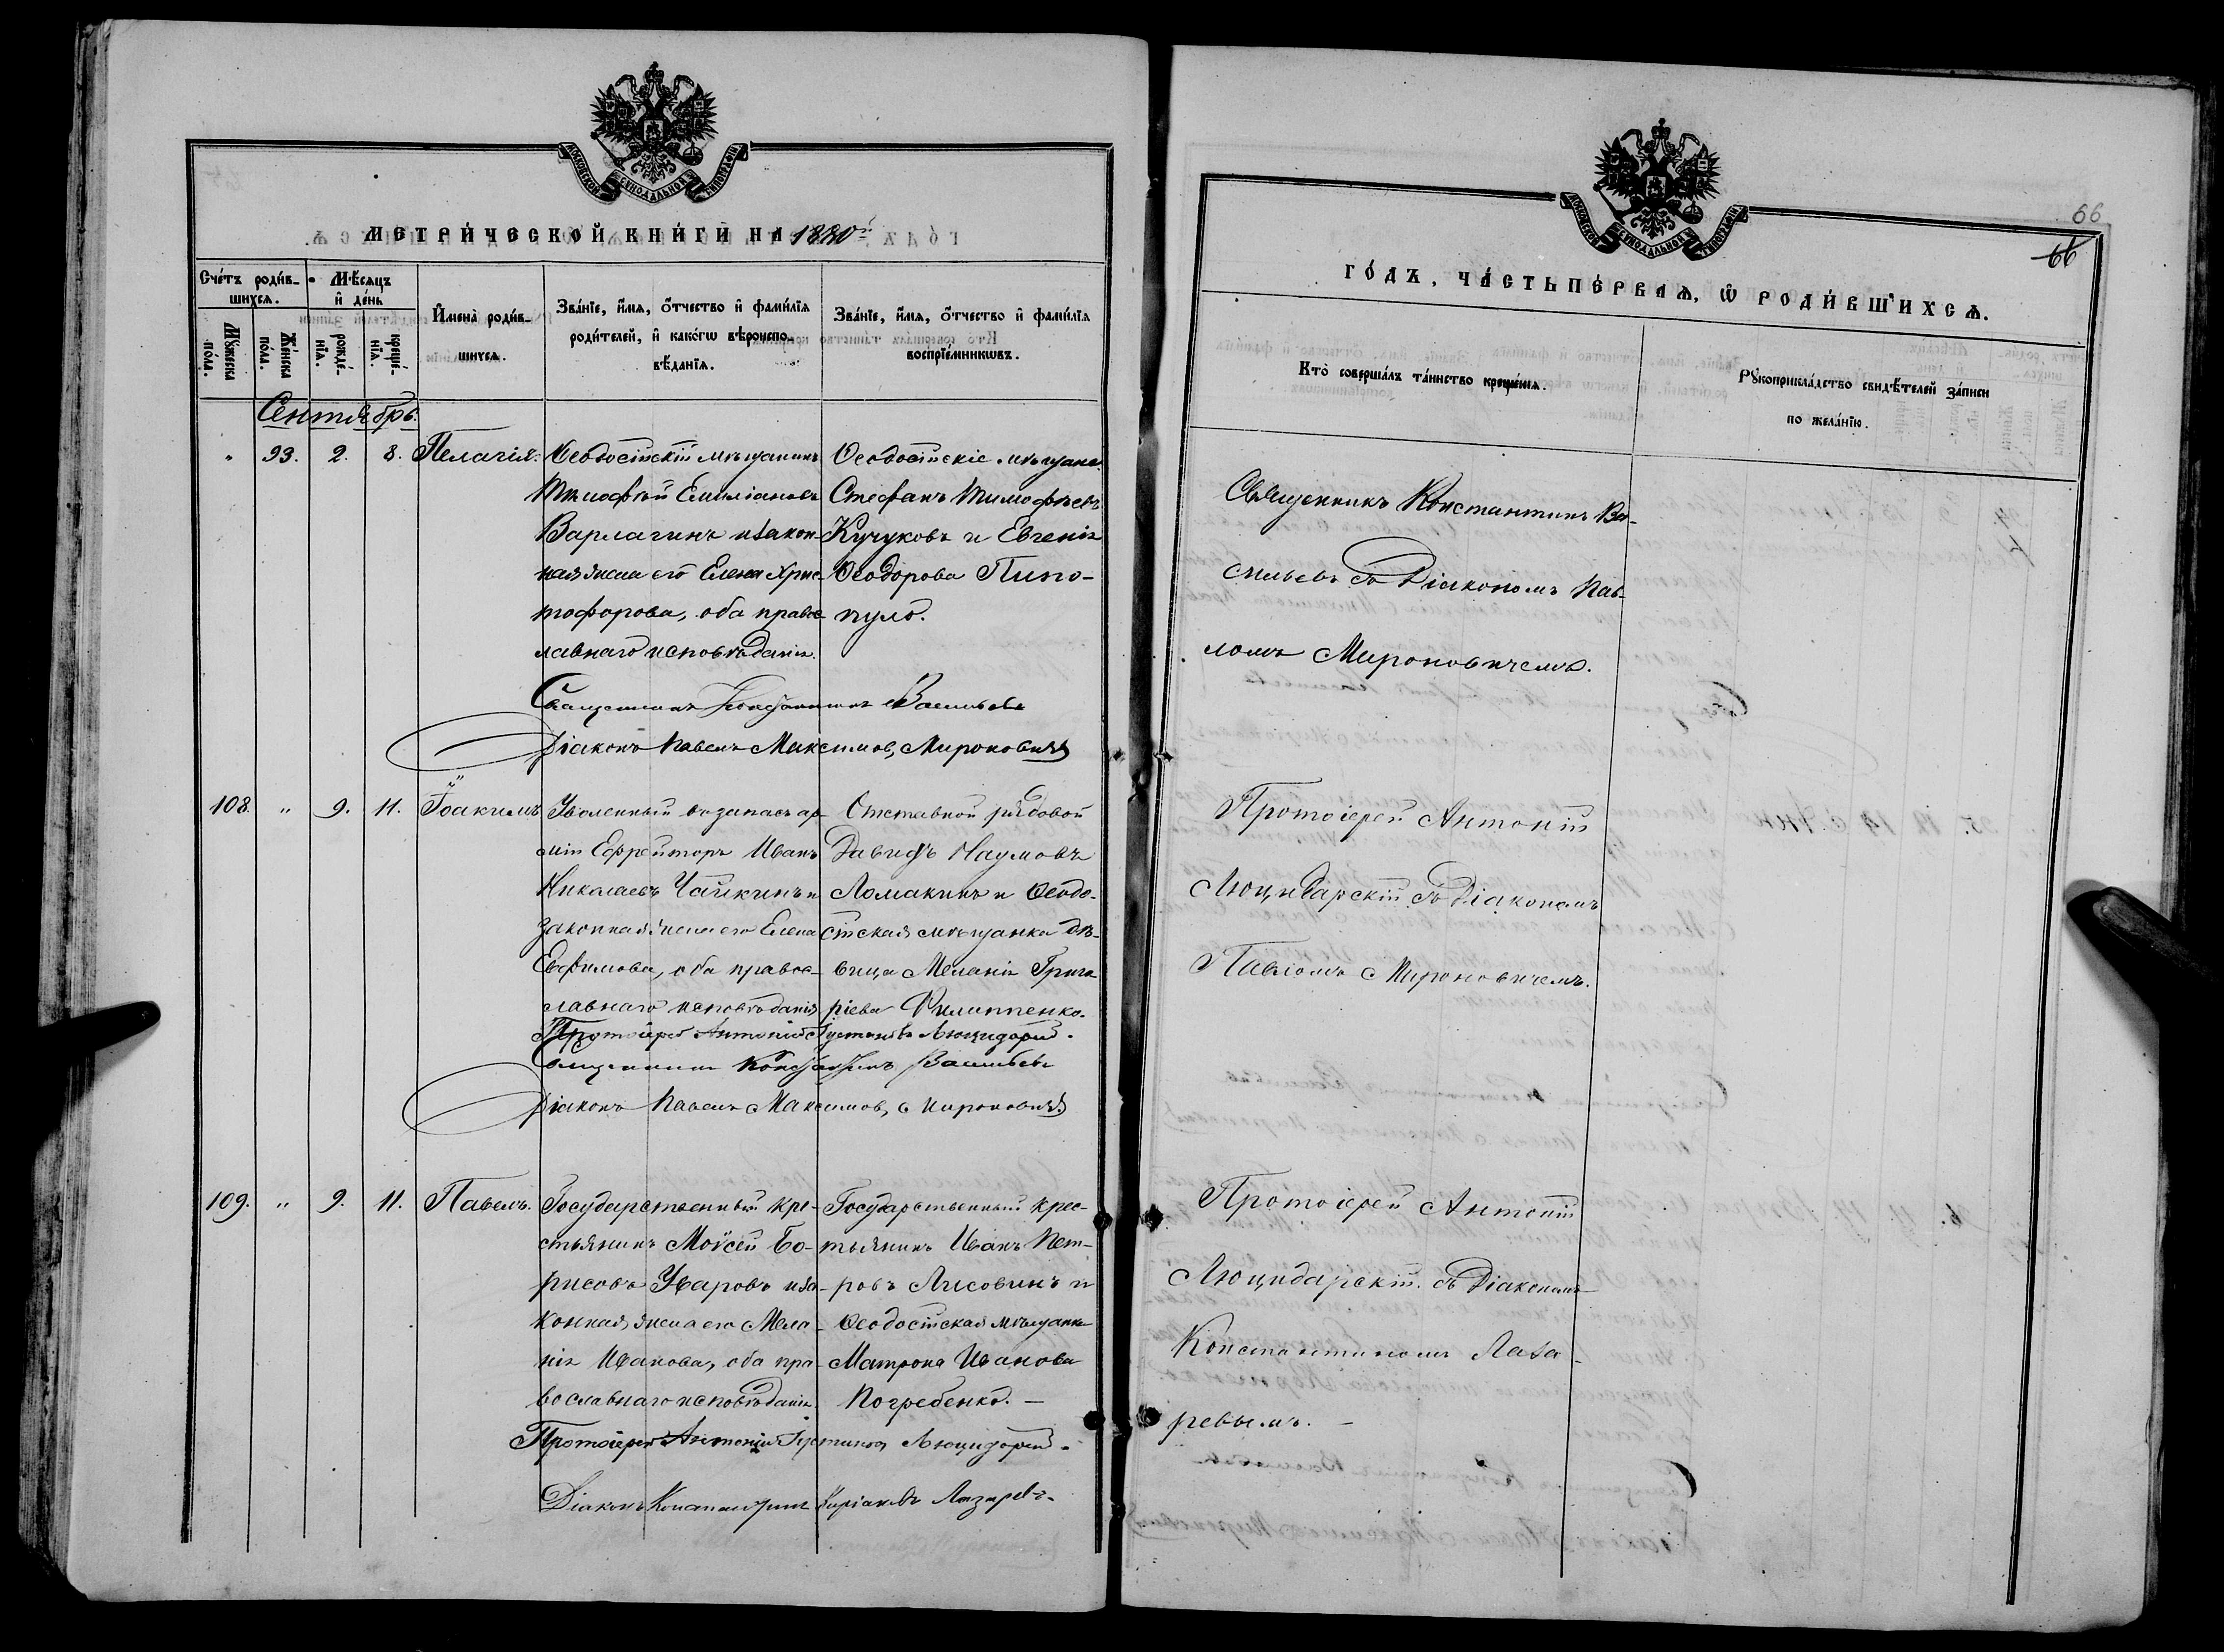 МОСКОВСКОЙ СѴНОДАЛЬНОЙ ТИПОГРАФІИ
МЕТРИ́ЧЕСКОЙ КНИ́ГИ НА 1880й
Сче́тъ роди́в-
шихсѧ.
Мѣ́сѧцъ
и҆ де́нь
Мꙋ́жеска по́ла.
Же́нска по́ла.
рожде́-нїѧ.
креще́-нїѧ.
И҆мена̀ роди́в-
шихсѧ.
Зва́нїе, и҆́мѧ, ѻ҆́тчество и҆ фами́лїѧ
роди́телей, и҆ како́гѡ вѣроиспо-
вѣ́данїѧ.
Зва́нїе, и҆́мѧ, ѻ҆́тчество и҆ фами́лїѧ
воспрїе́мникѡвъ.
Сентябрь.
" 93. 2. 8. Пелагія.
Ѳеодосійскій мѣщанинъ
Тимофей Емиліановъ
Варлагинъ и закон-
ная жена его Елена Хрис-
тофорова, оба правос-
лавнаго исповѣданія.
Ѳеодосійскіе мѣщане
Стефанъ Тимофѣевъ
Кучуковъ и Евгенія
Ѳеодорова Пипо-
пуло.
Священникъ Константинъ Васильевъ
Діаконъ Павелъ Максимов, Мироновичъ
108. " 9. 11. Іоакимъ
Уволенный въ запасъ ар-
міи Ефрейторъ Иванъ
Николаевъ Чайкинъ и
законная жена его Елена
Евфимова, оба правос-
лавнаго исповѣданія
Отставной рядовой
Давидъ Наумовъ
Ломакинъ и Ѳеодо-
сійская мѣщанка дѣ-
вица Меланія Григо-
ріева Филиппенко.
Протоіерей Антоній Іустиновъ Люцидарскій.
Священникъ Константинъ Васильевъ
Діаконъ Павелъ Максимов, Мироновичъ
109. " 9. 11. Павелъ.
Государственный кре-
стьянинъ Моѵсей Бо-
рисовъ Уваровъ и за-
конная жена его Мела-
нія Иванова, оба пра-
вославнаго исповѣданія.
Государственный крес-
тьянинъ Иванъ Пет-
ровъ Лисовинъ и
Ѳеодосійская мѣщанка
Матрона Иванова
Погребенко. —
Протоіерей Антоній Іустиновъ Люцидарскій.
Діаконъ Константинъ Киріаковъ Лазаревъ.
МОСКОВСКОЙ СѴНОДАЛЬНОЙ ТИПОГРАФІИ
66
66
ГО́ДЪ, ЧА́СТЬ ПЕ́РВАѦ, Ѽ РОДИ́ВШИХСѦ.
Кто̀ соверша́лъ та́инство креще́нїѧ.
Рꙋкоприкла́дство свидѣ́телей за́писи
по жела́нїю.
Священникъ Константинъ Ва-
сильевъ съ Діакономъ Пав-
ломъ Мироновичемъ.
Протоіерей Антоній
Люцидарскій съ Діакономъ
Павломъ Мироновичемъ.
Протоіерей Антоній
Люцидарскій съ Діакономъ
Константиномъ Лаза-
ревымъ. —